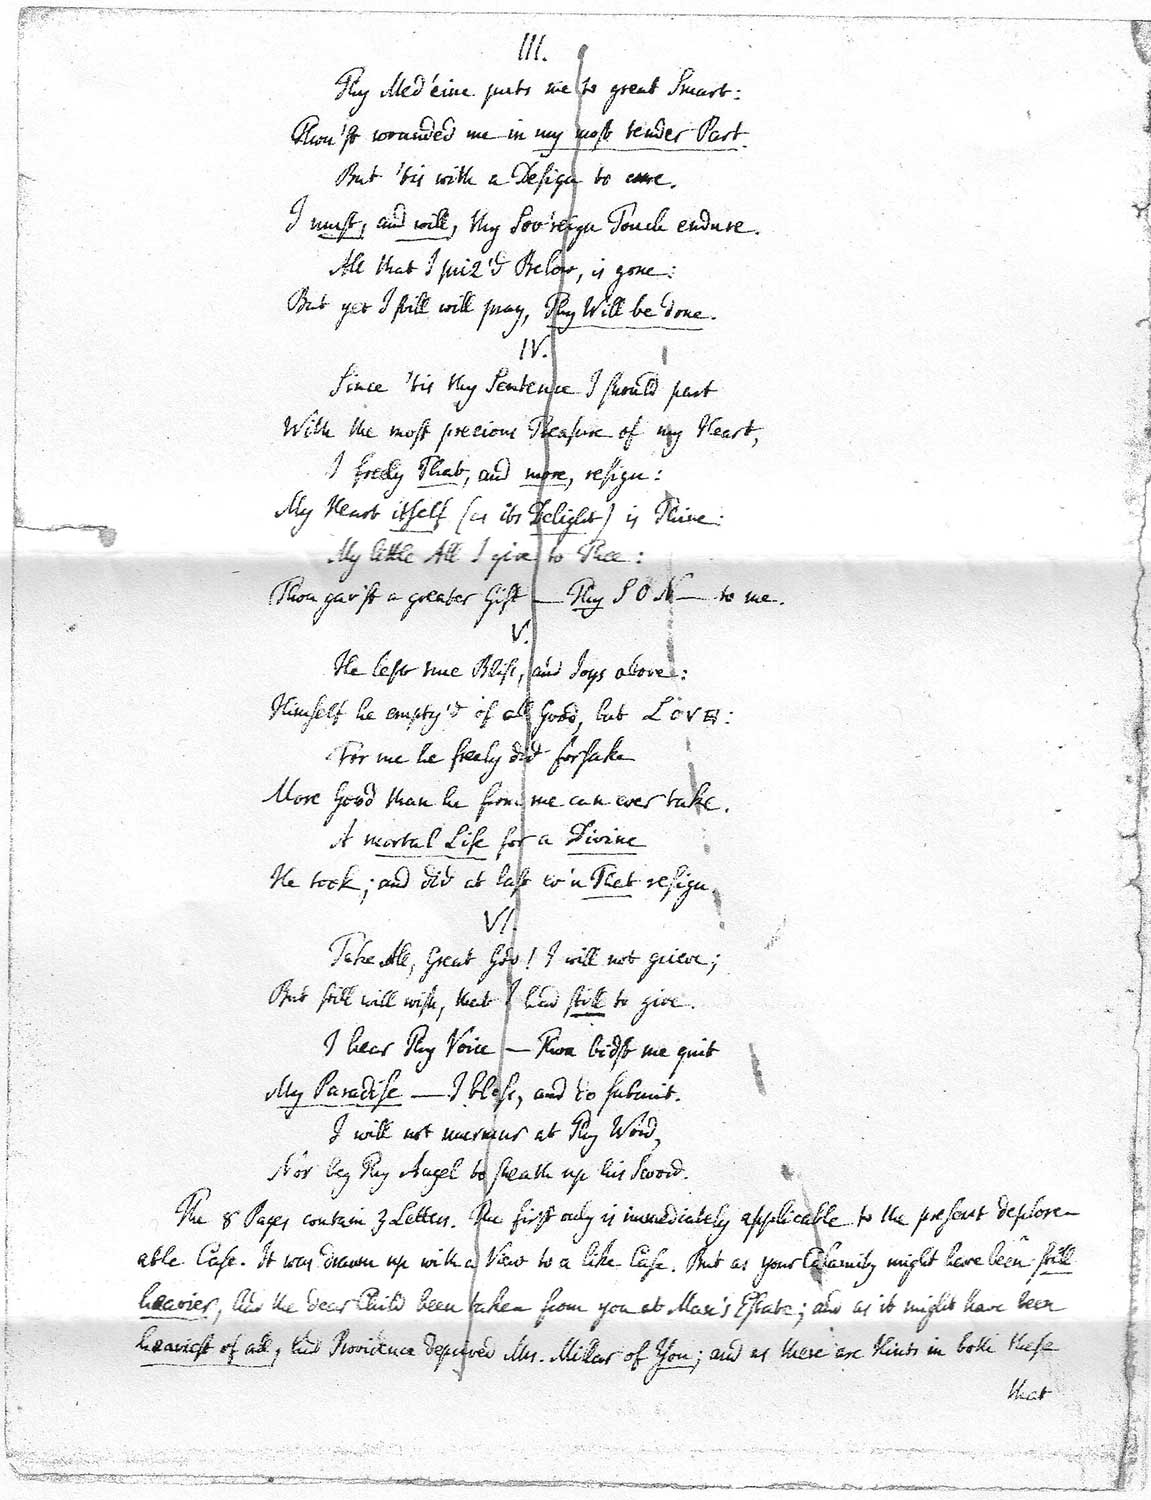 III.
Thy Med'cine puts me to great Smart:
Thou'st wounded me in my most tender Part.
But 'tis with a Design to cure.
I must, and will, thy Sov'reign Touch endure.
All that I priz'd Below, is gone:
But yet I still will pray, Thy Will be done.
IV.
Since 'tis thy Sentence I should part
With the most precious Treasure of my Heart,
I freely That, and more, resign:
My Heart itself (as its Delight) is Thine:
My little All I give to Thee:
Thou gav'st a greater Gift — Thy SON — to me.
V.
He left true Bliss, and Joys above:
Himself he empty'd of all Good, but LOVE:
For me he freely did forsake
More Good than he from me can ever take.
A mortal Life for a Divine
He took; and did at last ev'n That resign.
VI.
Take All, Great God! I will not grieve;
But still will wish, that I had still to give.
I hear Thy Voice — Thou bidst me quit
My Paradise — I bless, and do submit.
I will not murmur at Thy Word,
Nor beg Thy Angel to sheath up his Sword.
The 8 Pages contain 3 Letters. The first only is immediately applicable to the present deplor-
able Case. It was drawn up with a View to a like Case. But as your Calamity might have been still
heavier, had the dear Child been taken from you at Man's Estate; and as it might have been
heaviest of all, had Providence deprived Mrs. Millar of You; and as there are Hints in both these
that